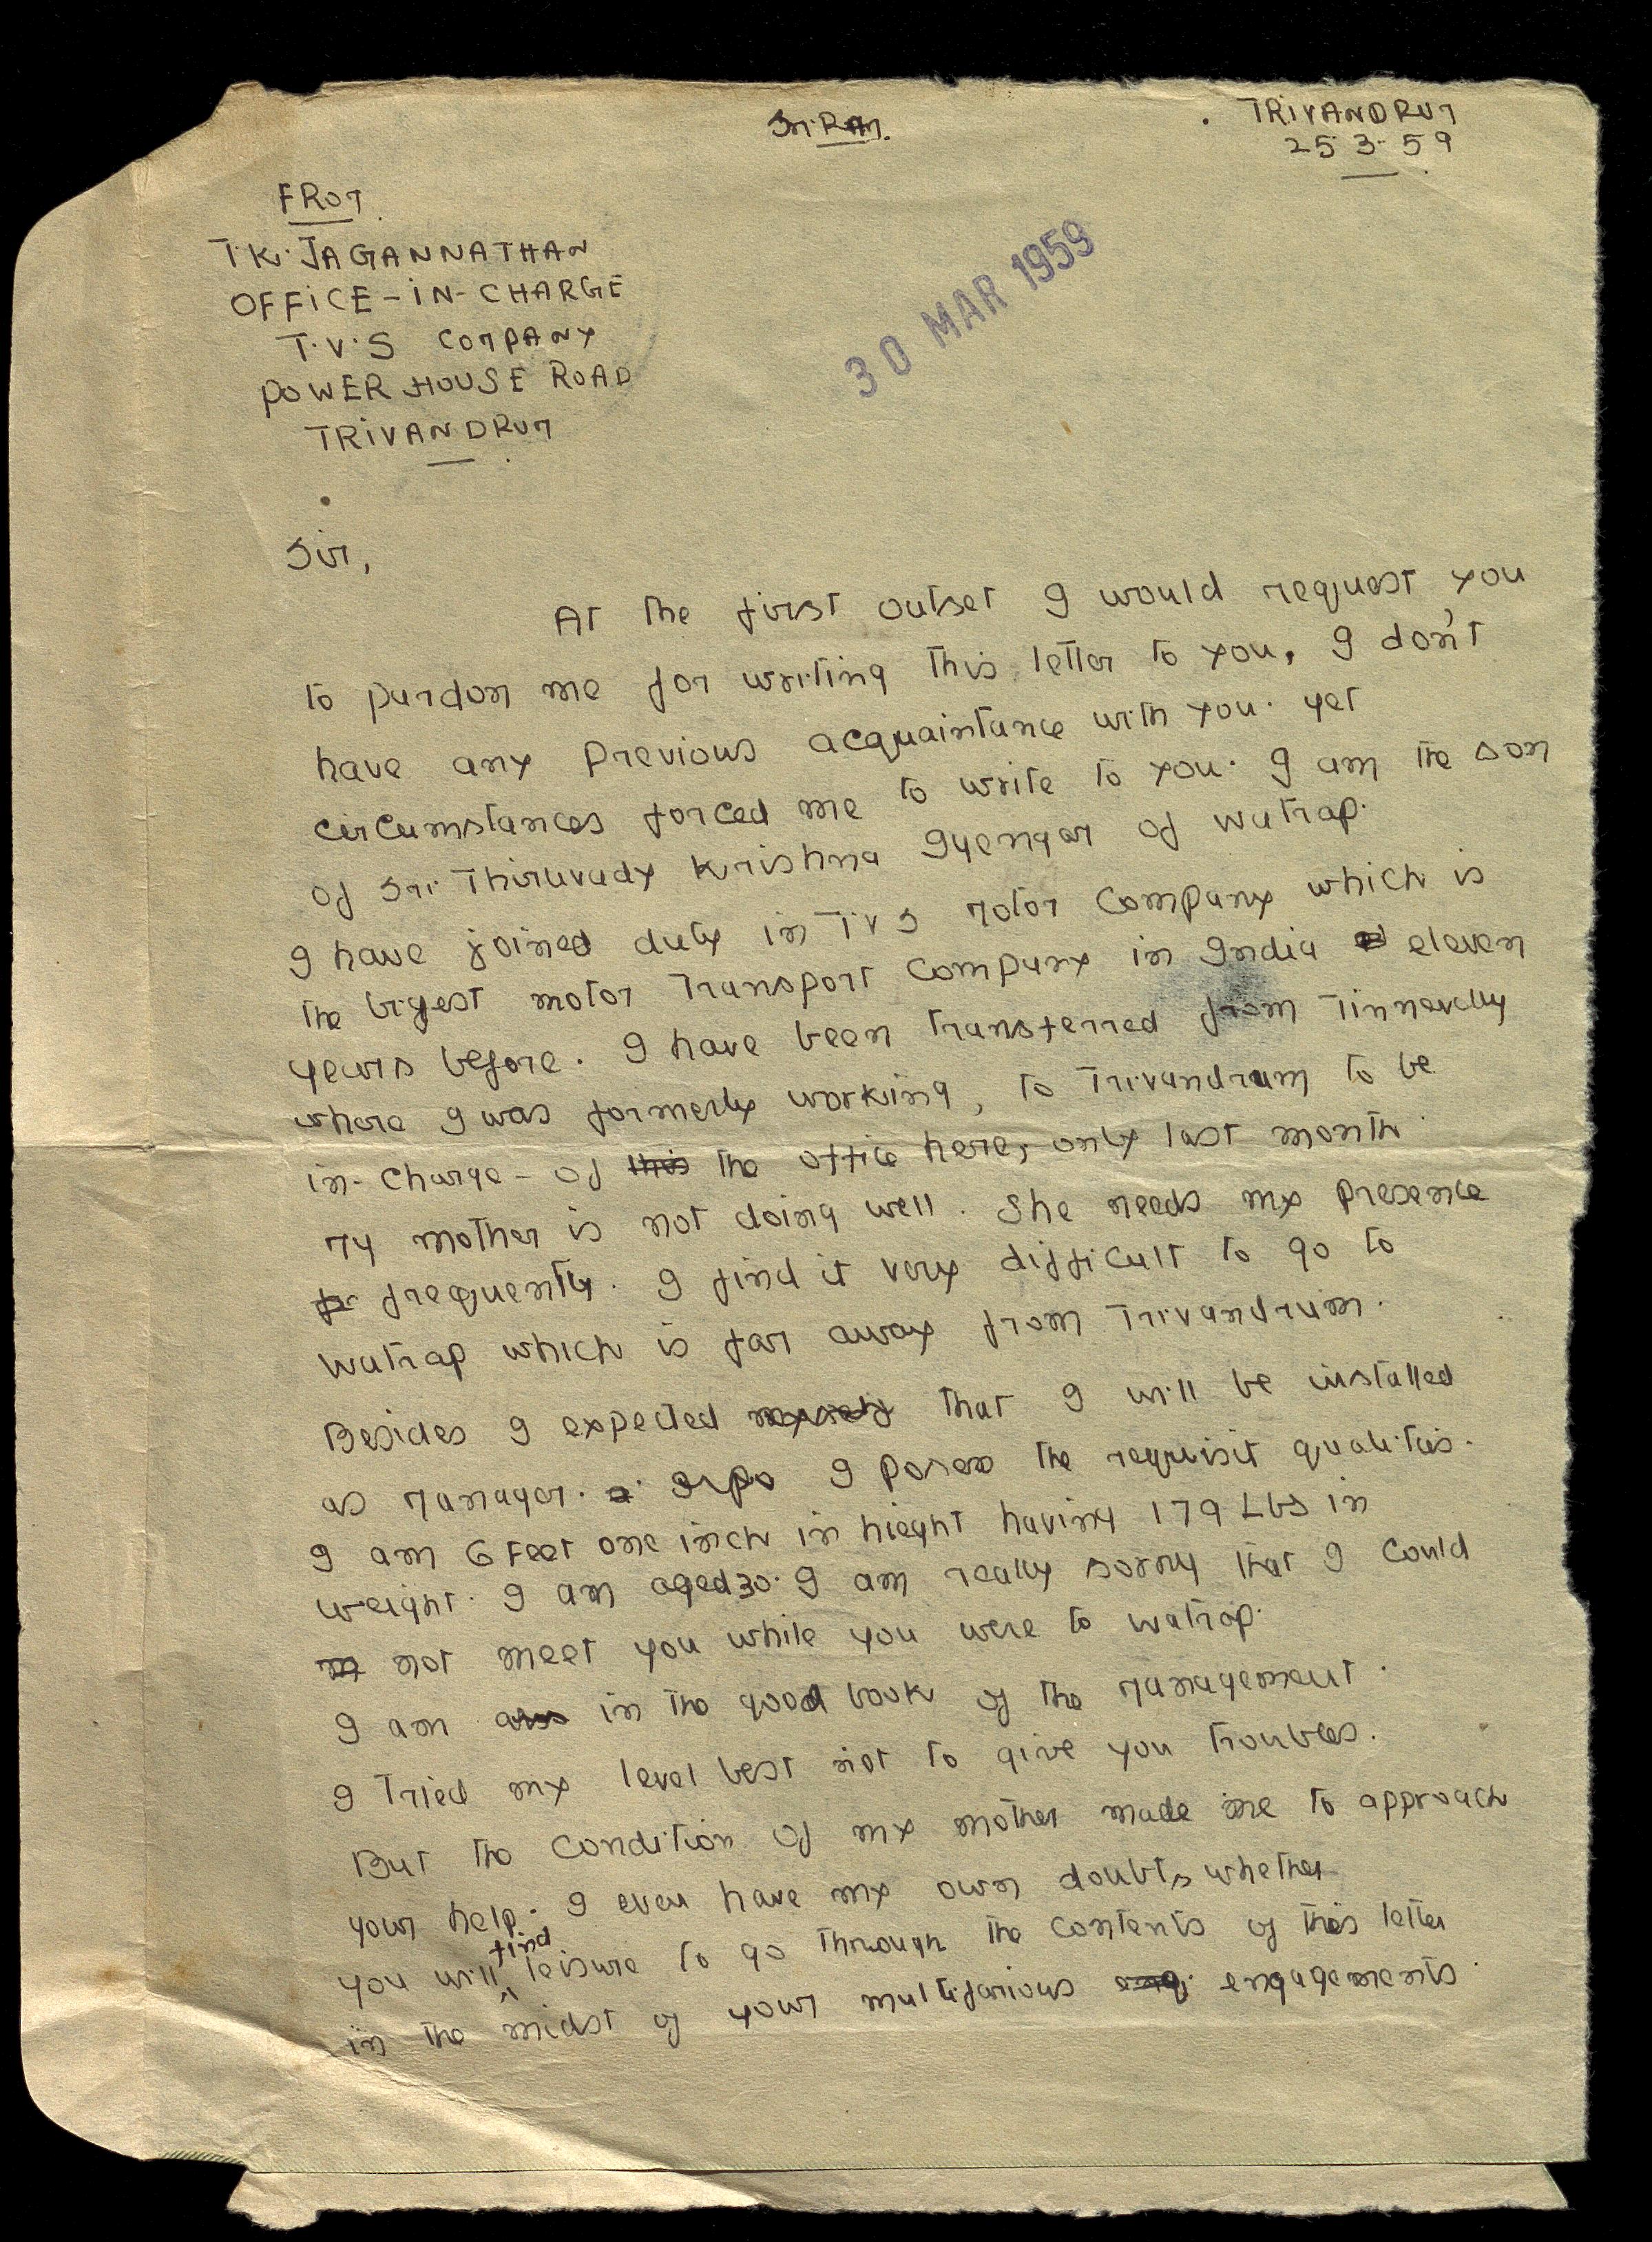 Sri Ram.
TRIVANDRUM
25.3.59
FROM
T.K. JAGANNATHAN
OFFICE-IN-CHARGE
T.V.S COMPANY
POWER HOUSE ROAD
TRIVANDRUM
30 MAR 1959
Sir,
At the first outset I would request you
to pardon me for writing this letter to you, I don't
have any previous acquaintance with you. yet
circumstances forced me to write to you. I am the son
of Sri Thiruvady Krishna Iyengar of Watrap.
I have joined duty in T V S Motor Company which is
the bigest motor Transport Company in India eleven
years before. I have been transferred from Tinnevelly
where I was formerly working, to Trivandrum to be
in-charge-of this the office here, only last month.
My mother is not doing well. She needs my presence
fr frequently. I find it very difficult to go to
Watrap which is far away from Trivandrum.
Besides I expected that I will be installed
as Manager. I poses the requisit qualities.
I am 6 Feet one inch in hieght having 179 Lbs in
weight. I am aged 30. I am really sorry that I could
not meet you while you were to watrap.
I am in the good book of the Management.
I Tried my level best not to give you troubles.
But the condition of my mother made me to approach
your help. I even have my own doubts whether
you will find leisure to go through the contents of this letter
in the midst of your multifarious eng. engagements.